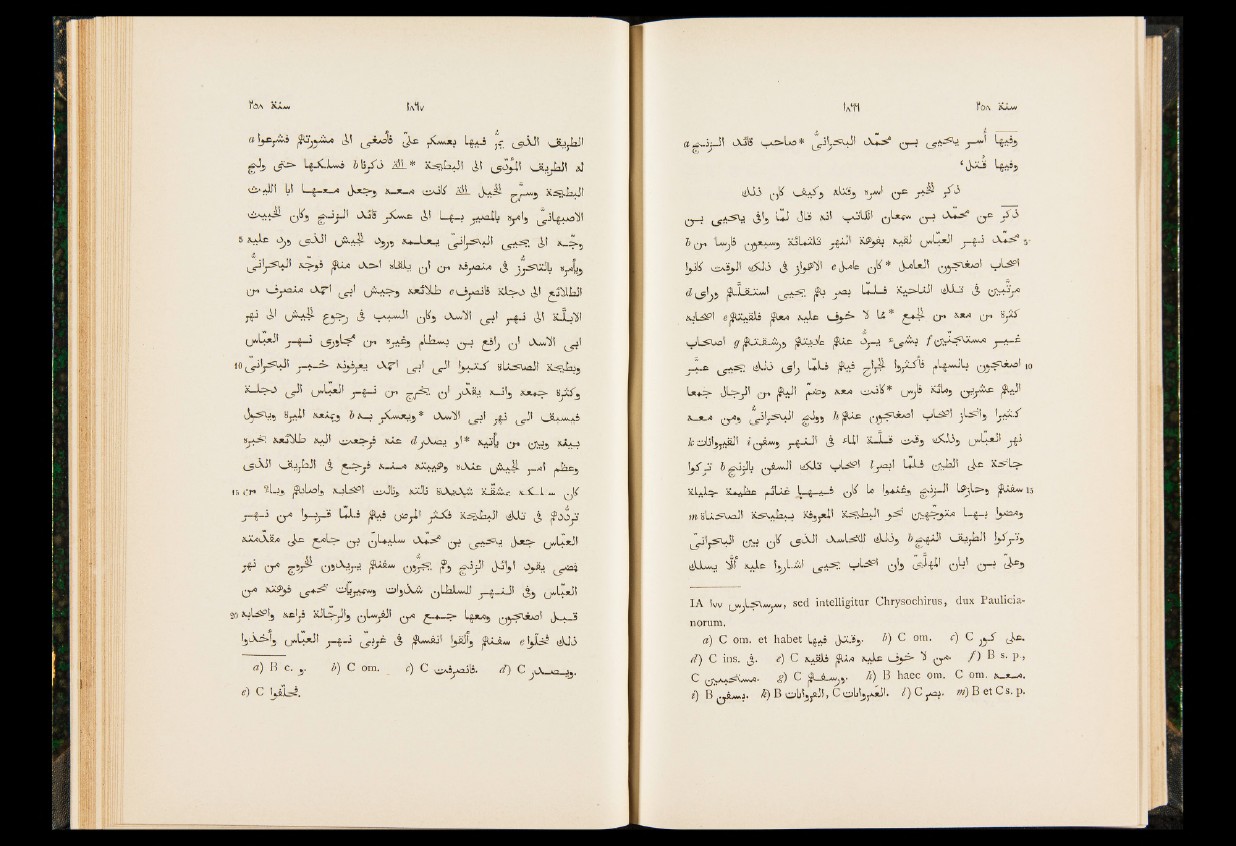 سنة ٢٥٨ ١٨٦٦
وفيها أسر يحيى بن محمّد البحرانىّ *صاحب قائد الزنج a
وفيها قُتل،
ذكر الخبر عن اسره وقتله وكيف كان ذلك
ذُكر عن محمّد بن سمعان الكاتب انه قال لمّا وافى يحيى بن
5 محمّد نهر العبّاس لقيه بفوهة النهر ثلثمائة وسبعون فارسا من b
اصحاب اصغجون العامل *كان عامل c الاهواز فى ذلك الوقت كانوا
مرتّبين فى تلك الناحية فلمّا بصر بهم يحيى استقلّهم وراى d
كثرة من معه من الجمع *ما لا خوف عليه معهم فلقيتهم e اصحابه
غير مستجنّين f بشىء يردّ عنهم عاديتهم ورشقتهم g اصحاب
10 اصغجون بالسهام فاكثروا الجراح فيهم فلمّا راى ذلك يحيى عبّر
اليهم عشرين ومائة فارس *كانت معه وضم اليهم من الرجال جمعا
كثيرا وانحاز اصحاب اصغجون عنهم h وولج البحرانىّ ومن معه
نهر العبّاس وذلك وقت قلّة الماء فى النهر وسفن i القيروانات k
جانحة على الطين فلمّا ابصر l اصحاب تلك السفن بالزنج b تركوا
15 سفنهم وحازها الزنج وغنموا ما كان فيها غنائم عظيمة جليلة
ومضوا بها متوجّهين نحو البطيحة المعروفة ببطيحة الصحناة m
وتركوا الطريق النهج b وذلك للتحاسد الذى كان بين البحرانىّ
وعلىّ بن ابان المهلّبىّ وان اصحاب يحيى اشاروا عليه ألّا يسلك
IA ١٧٧ سرسحارس, sed intelligitur Chrysochirus, dux Paulicia-
norum.
a) C om. et habet وقتل فيها. b) C om. c) C كور على.
d) C ins. فى. e) C من لا خوف عليه منهم فلقيه. f) B s. p.,
C مستجيبين. g) C ورسفهم. h) B haec om. C om. معه.
i) B بسفن. k) B الغروانات, C الغيروانات. l) C بصر. m) B et C s. p.
سنة ٢٥٨ ١٨٦٧
الطريق الذى يمرّ فيها بعسكر علىّ فأصغى الى مشورتهم فشرعوا a
له الطريق المؤدّى الى البطيحة *التى ذكرنا b فسلكها حتى ولج
البطيحة وسرّح الخيل التى كانت معه وجعل معها ابا الليث
الاصبهانىّ وامره بالمصير بها الى عسكر قائد الزنج وكان الخبيث
5 وجّه الى يحيى البحرانىّ يعلمه ورود الجيش الذى ورد عليه
ويأمره بالتحرّز فى منصرفه من ان يلقاه احد منهم فوجّه البحرانىّ
الطلائع الى دجلة فانصرفت c طلائعه وجيش ابى احمد منصرف من
الأبلّة الى نهر ابى الاسد وكان السبب فى رجوع الجيش الى نهر
ابى الاسد ان رافع بن بسطام وغيره من مجاورى نهر العبّاس
10 وبطيحة الصحناة كتبوا الى ابى احمد يعرفونه خبر البحرانىّ
وكثرة جمعه وانه يقدّر ان يخرج من نهر العبّاس الى دجلة
فيسبق الى نهر ابى الاسد *ويعسكر به b ويمنعه الميرة ويحول
بينه وبين من يأتيه *او يصدر d عنه فرجعت اليه طلائعه بخبره
وعظم امر الجيش عنده وهيبته منه فرجع فى الطريق الذى
15 كان سلكه بمشقّة شديدة نالته ونالت اصحابه واصابهم وباء من
تردّدهم فى تلك البطيحة فكثر المرض فيهم فلمّا قربوا من نهر
العبّاس جعل يحيى بن محمّد سليمان بن جامع على مقدّمته
فمضى يقود اوائل الزنج وهم يجرّون سفنهم يريدون الخروج من نهر
العبّاس وفى النهر للسلطان شذوات وسميريّات تحمى فوهته من
20 قبل اصغجون ومعها جمع من الفرسان والرجّالة فراعه واصحابه
ذلك فخلّوا e سفنهم وألقوا انفسهم فى غربىّ نهر العبّاس وأخذوا
a) B c. و. b) C om. c) C فانصرفت. d) C ويصدر.
e) C فخلفوا.